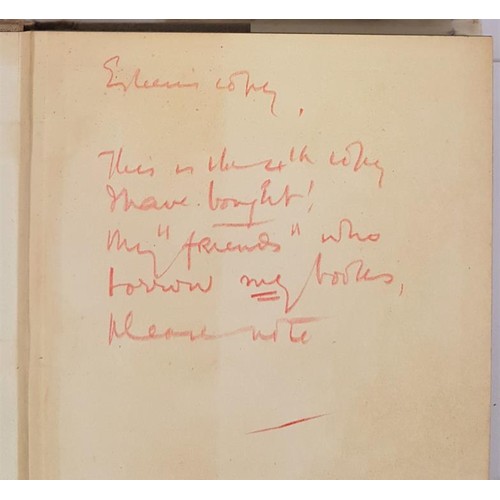 Eileen's copy,
This is the 4th copy
I have bought!
My "friends" who
borrow my books,
please note